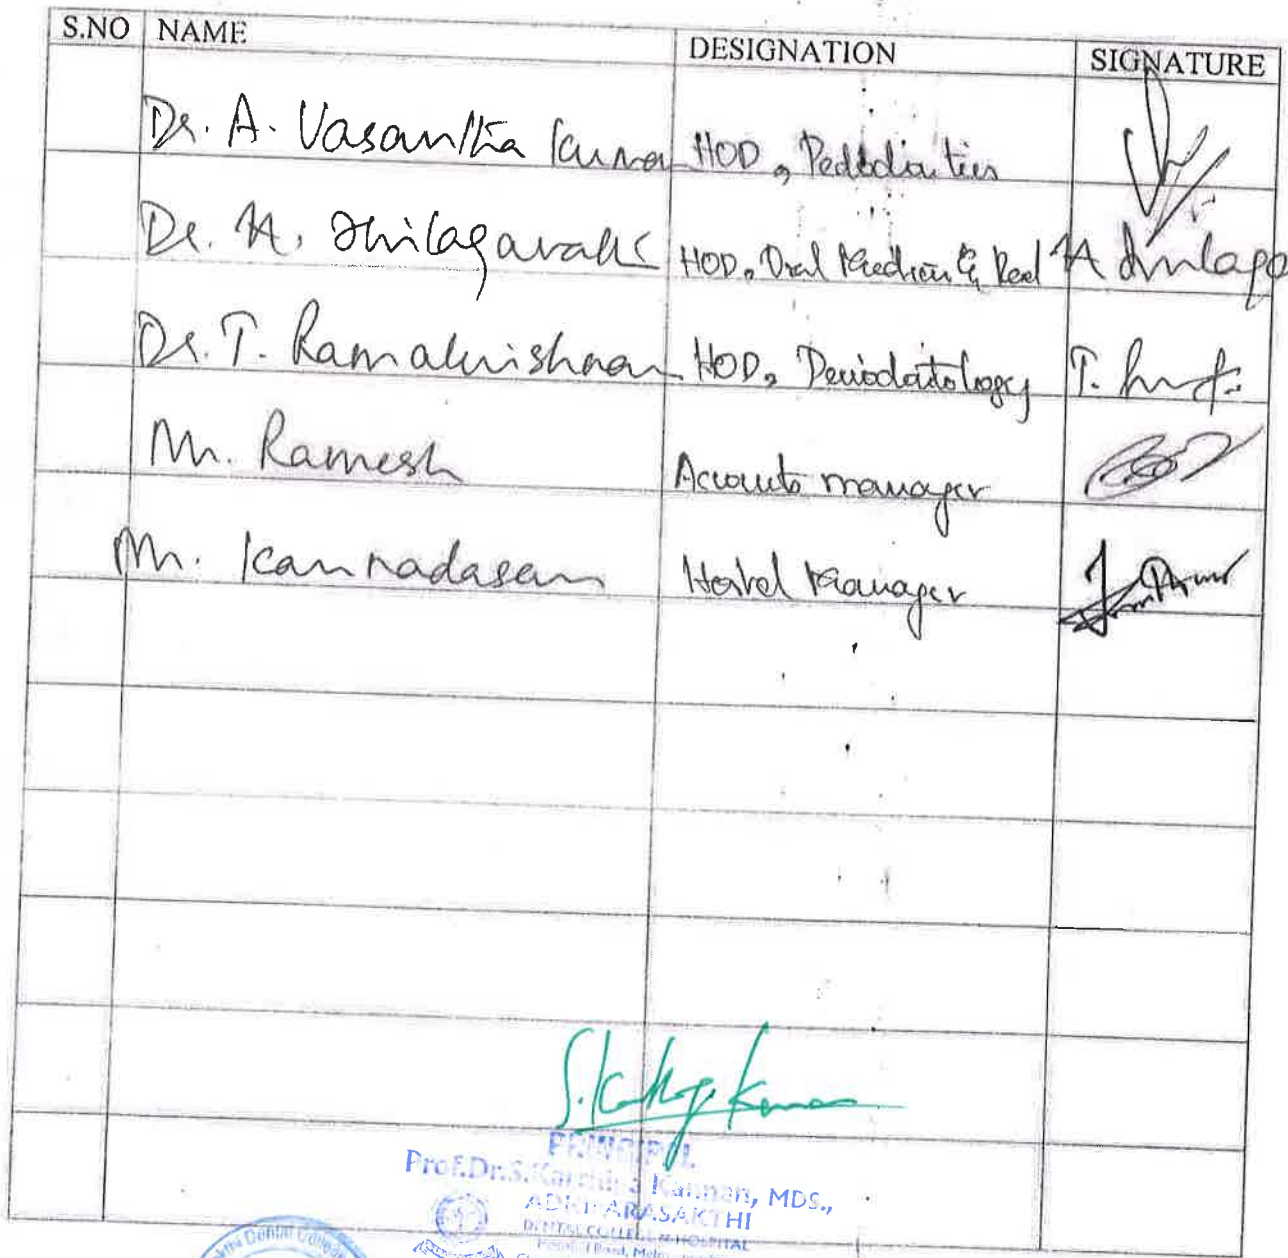 S.NO NAME DESIGNATION SIGNATURE
Dr. A. Vasantha Kumar HOD, Pedodontics
Dr. A. Thilagavathi HOD, Oral Medicine & Rad
Dr. T. Ramakrishnan HOD, Periodontology
Mr. Ramesh Accounts manager
Mr. Kannadasan Hostel Manager
PRINCIPAL
Prof.Dr.S.Karthiga Kannan, MDS.,
ADHIPARASAKTHI
DENTAL COLLEGE & HOSPITAL
Dental College